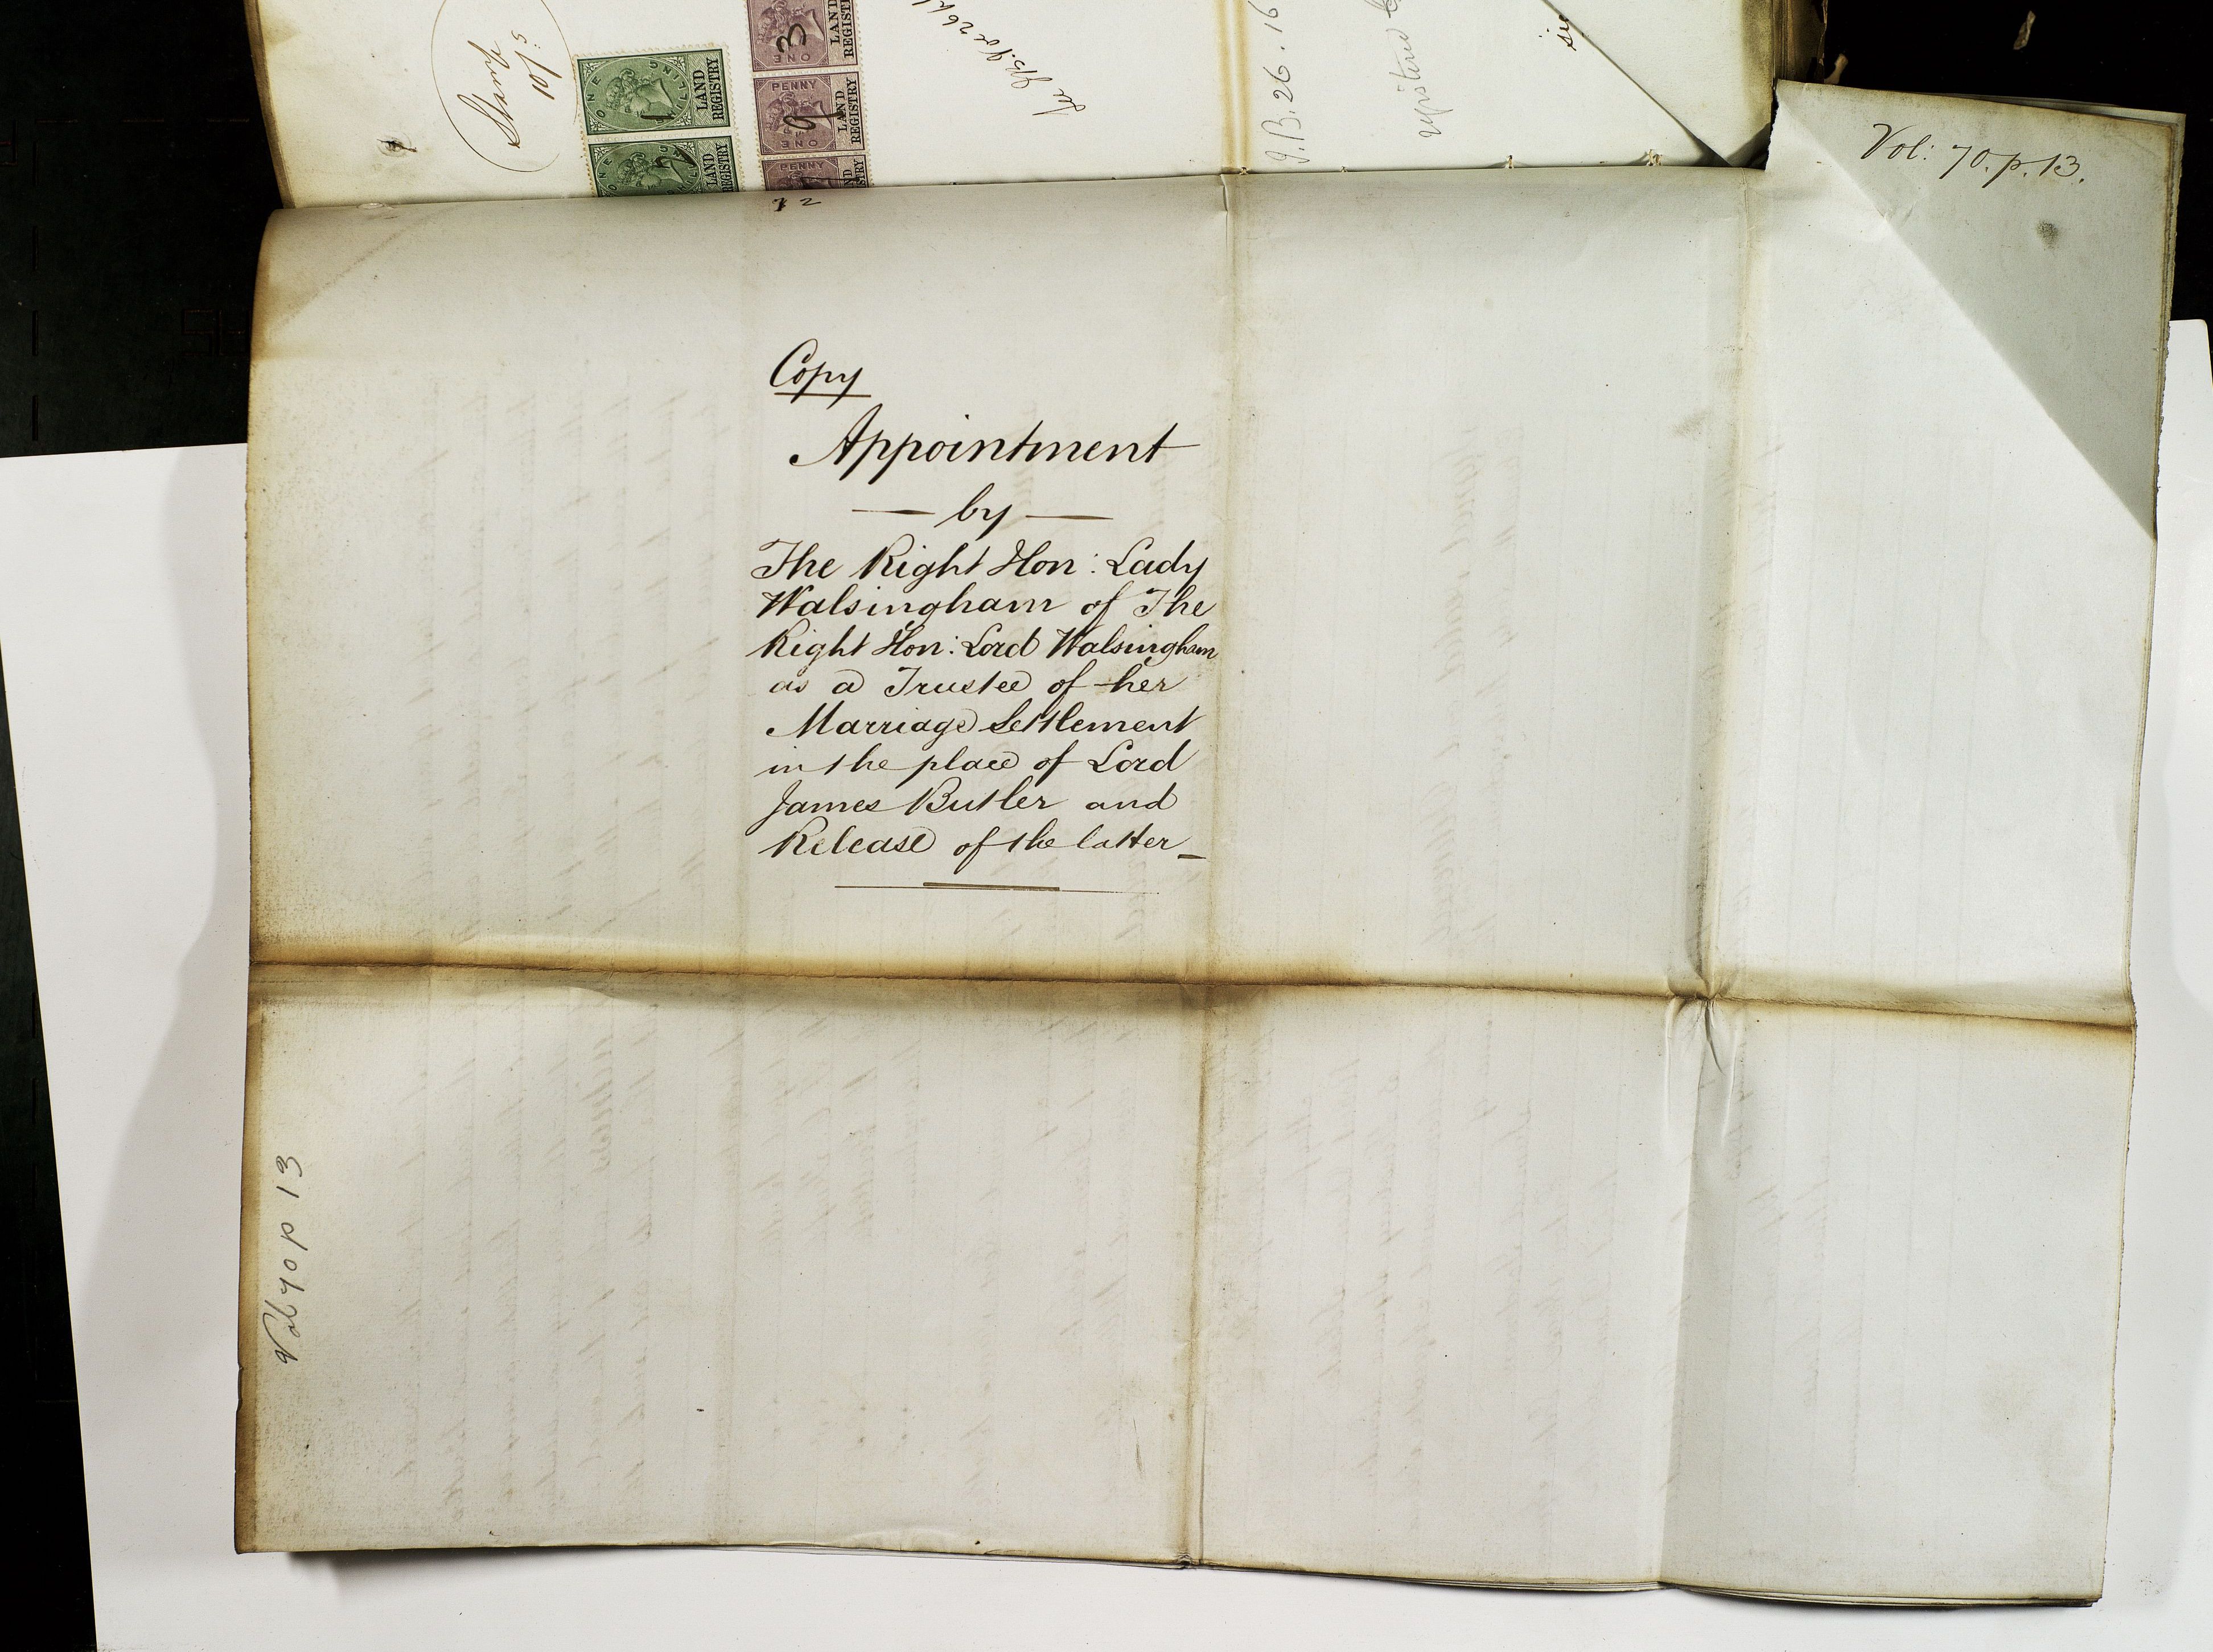 Stamp
10/s
ONE SHILLING
LAND
REGISTRY
1
LAND
REGISTRY
2
LAND
REGISTRY
ONE
3
PENNY
ONE
LAND
REGISTRY
9
PENNY
J.B. 26. 16
registered
Vol: 70. p. 13.
12
Copy
Appointment
— by —
The Right Hon: Lady
Walsingham of The
Right Hon: Lord Walsingham
as a Trustee of her
Marriage Settlement
in the place of Lord
James Butler and
Release of the latter —
Vol 70 p 13